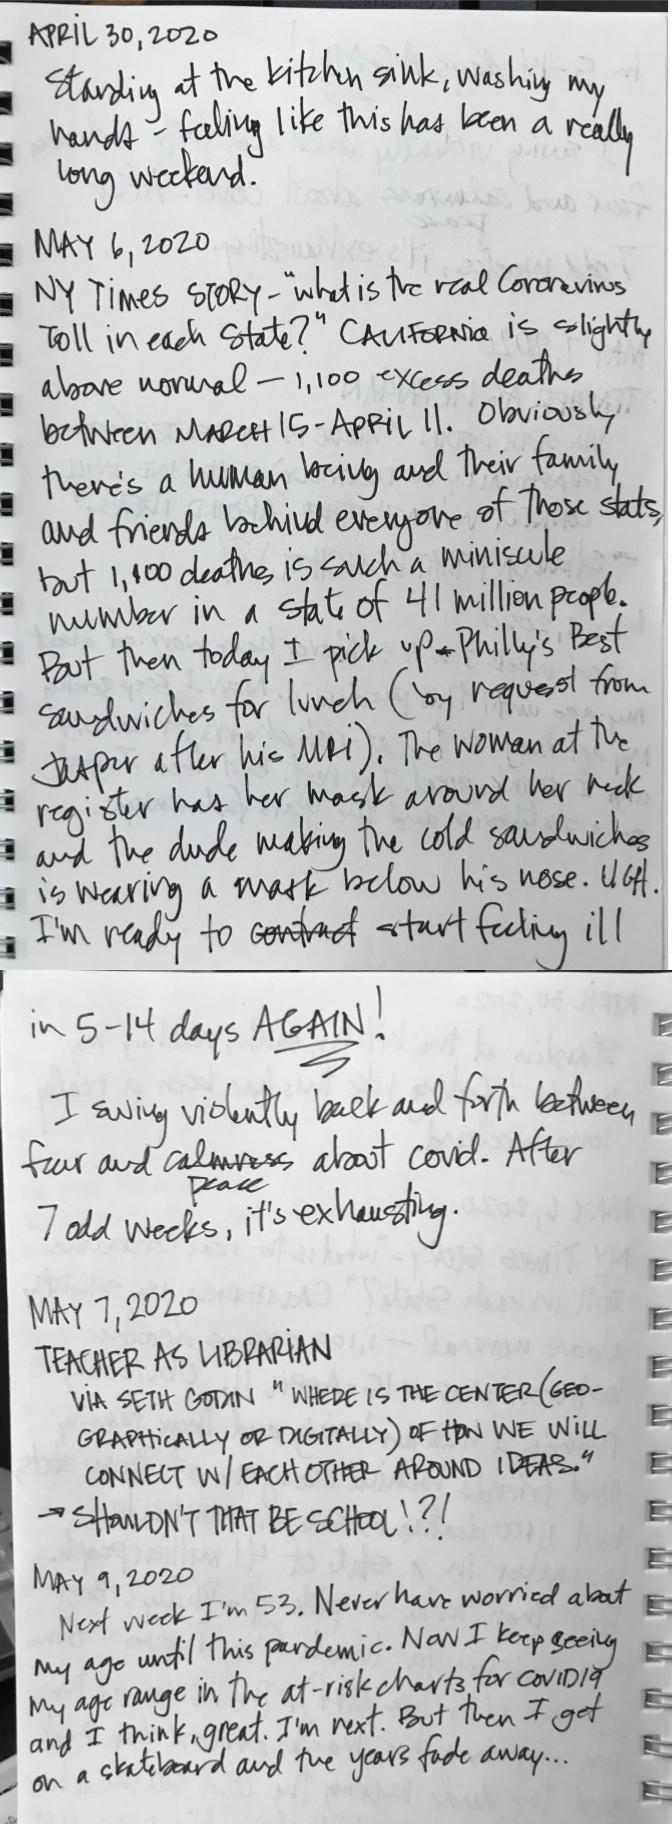 APRIL 30, 2020
Standing at the kitchen sink, washing my
hands - feeling like this has been a really
long weekend.
MAY 6, 2020
NY TIMES STORY - "what is the real Coronavirus
Toll in each State?" CALIFORNIA is slightly
above normal - 1,100 excess deaths
between MARCH 15 - APRIL 11. Obviously
there's a human being and their family
and friends behind everyone of those stats,
but 1,100 deaths is such a miniscule
number in a state of 41 million people.
But then today I pick up Philly's Best
sandwiches for lunch (by request from
Jasper after his MRI). The woman at the
register has her mask around her neck
and the dude making the cold sandwiches
is wearing a mask below his nose. UGH.
I'm ready to contract start feeling ill
in 5-14 days AGAIN!
I swing violently back and forth between
fear and calmness about covid. After
peace
7 odd weeks, it's exhausting.
MAY 7, 2020
TEACHER AS LIBRARIAN
VIA SETH GODIN "WHERE IS THE CENTER (GEO-
GRAPHICALLY OR DIGITALLY) OF HOW WE WILL
CONNECT W/ EACH OTHER AROUND IDEAS."
→ SHOULDN'T THAT BE SCHOOL!?!
MAY 9, 2020
Next week I'm 53. Never have worried about
my age until this pandemic. Now I keep seeing
my age range in the at-risk charts for COVID19
and I think, great. I'm next. But then I get
on a skateboard and the years fade away...